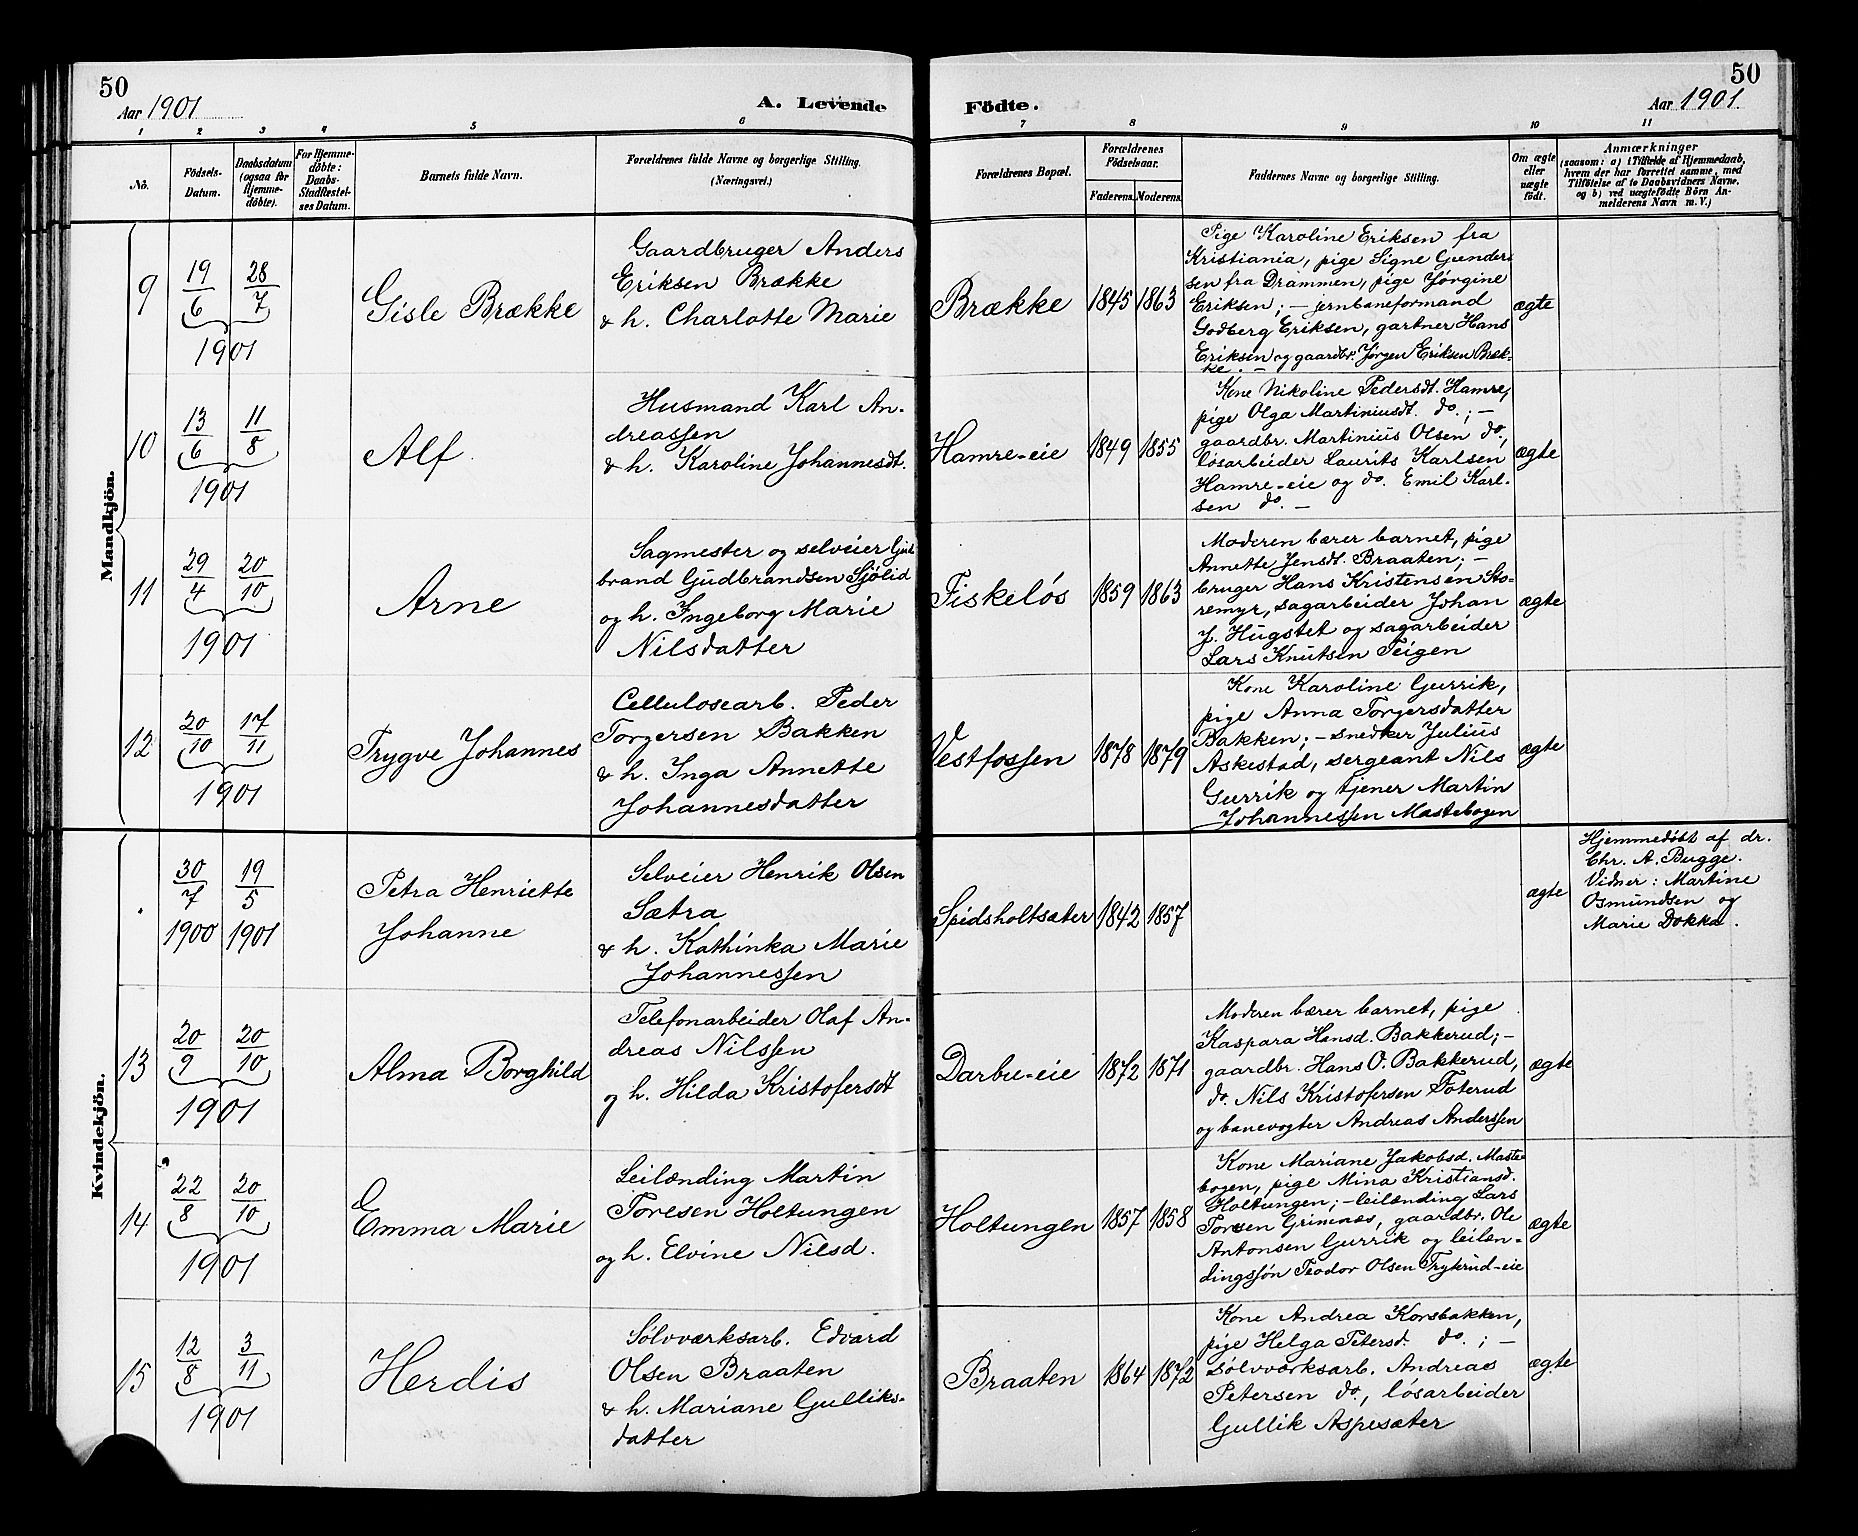 50
Aar 1901
A. Levende
Födte.
50
Aar 1901.
1 2 3 4 5 6 7 8 9 10 11
No.
Födsels-
Datum.
Daabsdatum
(ogsaa for
Hjemme-
döbte).
For Hjemme-
döbte:
Daabs-
Stadfæstel-
ses Datum.
Barnets fulde Navn.
Forældrenes fulde Navne og borgerlige Stilling.
(Næringsvei.)
Forældrenes Bopæl.
Forældrenes
Födselsaar.
Faderens. Moderens.
Faddernes Navne og borgerlige Stilling.
Om ægte
eller
uægte
født.
Anmærkninger
(saasom: a) i Tilfælde af Hjemmedaab,
hvem der har forrettet samme, med
Tilföielse af to Daabsvidners Navne,
og b) ved uægtefödte Börn An-
melderens Navn m. V.)
Mandkjön.
9
19/6 28/7
1901
Gisle Brække
Gaardbruger Anders
Eriksen Brække
& h. Charlotte Marie
Brække
1845 1863
Pige Karoline Eriksen fra
Kristiania, pige Signe Gunder-
sen fra Drammen, pige Jørgine
Eriksen; – jernbaneformand
Godberg Eriksen, gartner Hans
Eriksen og gaardbr. Jörgen Eriksen Bræk-
ke. –
ægte
10
13/6 11/8
1901
Alf
Husmand Karl An-
dreassen
& h. Karoline Johannesdt.
Hamre-eie
1849 1855
Kone Nikoline Pedersdt. Hamre,
pige Olga Martiniusdt. do.; –
gaardbr. Martinius Olsen do,
løsarbeider Laurits Karlsen
Hamre-eie og do. Emil Karl-
sen do. –
ægte
11
29/4 20/10
1901
Arne
Sagmester og selveier Gud-
brand Gudbrandsen Sjölid
og h. Ingeborg Marie
Nilsdatter
Fiskeløs
1859 1863
Moderen bærer barnet, pige
Annette Jensdt. Braaten; –
bruger Hans Kristensen Sto-
remyr, sagarbeider Johan
J. Hugstet og sagarbeider
Lars Knutsen Teigen
ægte
12
20/10 17/11
1901
Trygve Johannes
Cellulosearb. Peder
Torgersen Bakken
& h. Inga Annette
Johannesdatter
Vestfossen
1878 1879
Kone Karoline Gurrik,
pige Anna Torgersdatter
Bakken; – snedker Julius
Askestad, sergeant Nils
Gurrik og tjener Martin
Johannessen Mastebogen
ægte
Kvindekjön.
30/7 19/5
1900 1901
Petra Henriette
Johanne
Selveier Henrik Olsen
Sætra
& h. Kathinka Marie
Johannessen
Spidsholtsæter
1842 1857
ægte
Hjemmedøbt af dr.
Chr. A. Bugge.
Vidner: Martine
Osmundsen og
Marie Dokka.
13
20/9 20/10
1901
Alma Borghild
Telefonarbeider Olaf An-
dreas Nilssen
og h. Hilda Kristofersdt
Darbu-eie
1872 1871
Moderen bærer barnet, pige
Kaspara Hansd. Bakkerud; –
gaardbr. Hans O. Bakkerud,
do. Nils Kristofersen Foterud
og banevogter Andreas Anderssen
ægte
14
22/8 20/10
1901
Emma Marie
Leilænding Martin
Toresen Holtungen
og h. Elvine Nilsd.
Holtungen
1857 1858
Kone Mariane Jakobsd. Maste-
bogen, pige Mina Kristiansd.
Holtungen; – leilænding Lars
Toresen Grimnæs, gaardbr. Ole
Antonsen Gurrik og leilæn-
dingssön Teodor Olsen Trykrud-eie
ægte
15
12/8 3/11
1901
Herdis
Sølvværksarb. Edvard
Olsen Braaten
& h. Mariane Gulliks-
datter
Braaten
1864 1872
Kone Andrea Korsbakken,
pige Helga Petersd. do.; –
sølvværksarb. Andreas
Petersen do., løsarbeider
Gullik Aspesæter
ægte